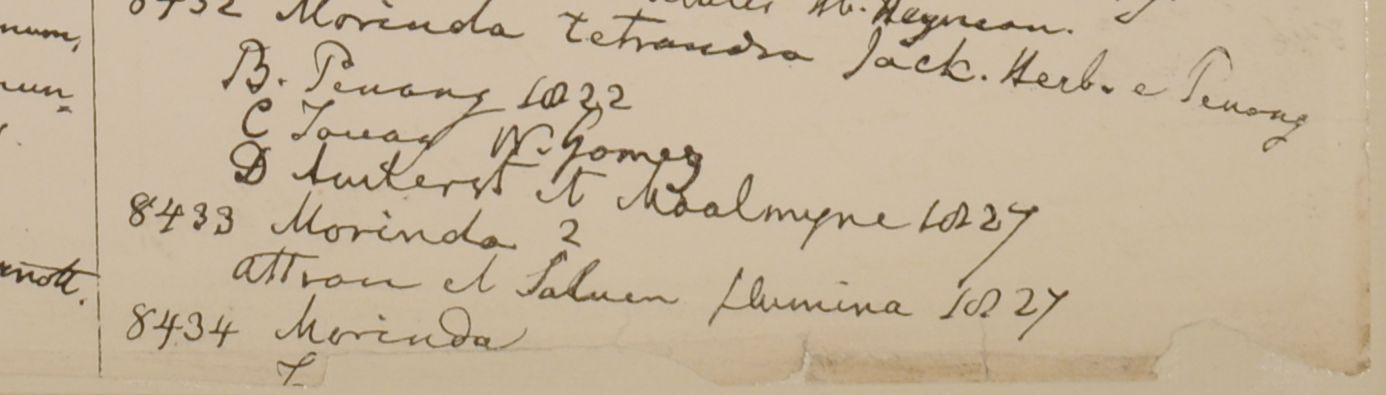 num,
Hb. Heynean.
8432 Morinda tetrandra Jack. Herb. e Penang
B. Penang 1822
C Tavay W. Gomez
D Amherst et Moalmyne 1827
8433 Morinda 2
attran et Saluen flumina 1827
8434 Morinda